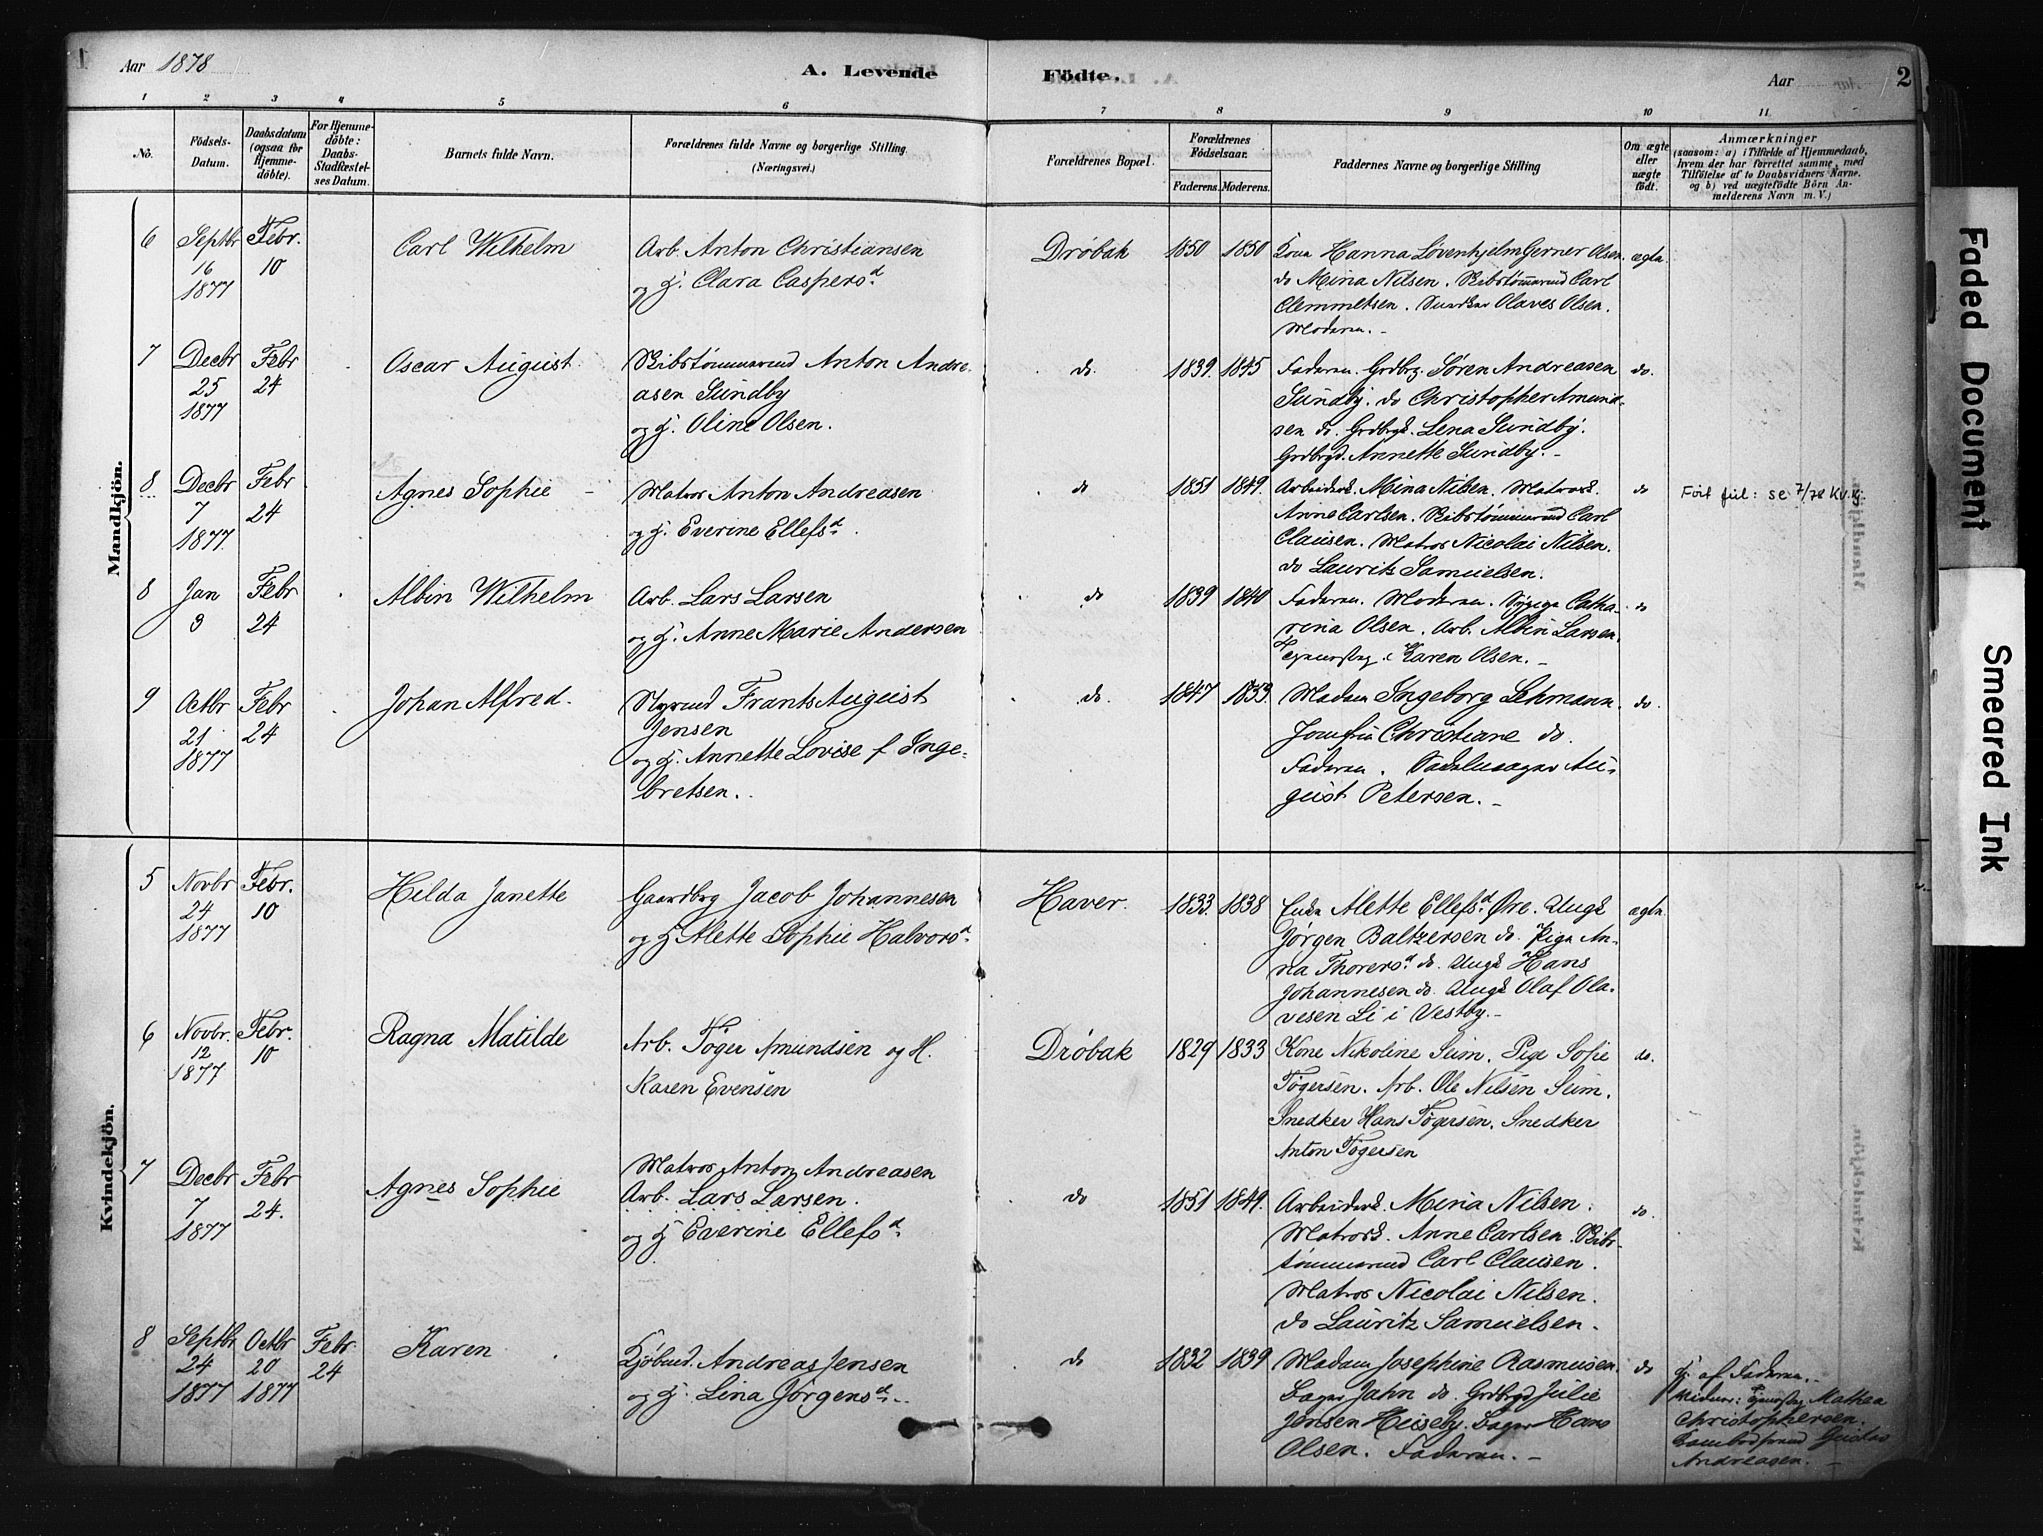 Aar 1878
A. Levende
Födte.
Aar
2
1 2 3 4 5 6 7 8 9 10 11
No.
Födsels-
Datum.
Daabsdatum
(ogsaa for
Hjemme-
döbte).
For Hjemme-
döbte:
Daabs-
Stadfæstel-
ses Datum.
Barnets fulde Navn.
Forældrenes fulde Navne og borgerlige Stilling
(Næringsvei.)
Forældrenes Bopæl.
Forældrenes
Födselsaar.
Faderens. Moderens.
Faddernes Navne og borgerlige Stilling
Om ægte
eller
uægte
födt.
Anmærkninger
(saasom: a) i Tilfælde af Hjemmedaab,
hvem der har forrettet samme, med
Tilföielse af to Daabsvidners Navne.
og b) ved uægtefödte Börn An-
melderens Navn m. V.)
Mandkjön.
6
Septbr
16
1877
Febr.
10
Carl Wilhelm
Arb. Anton Christiansen
og H. Clara Caspersd.
Drøbak
1850 1850
Kone Hanna Løvenhjelm Gerner Olsen.
do Mina Nilsen. Skibstømmermd Carl
Clemmetsen. Snedker Olaves Olsen.
Moderen.-
ægte.
7
Decbr
25
1877
Febr
24
Oscar August
Skibstømmermd Anton Andre-
asen Sundby
og H. Oline Olsen.
do.
1839. 1845
Faderen. Grdbrg. Søren Andreasen
Sundby. do Christopher Amund-
sen do. Grdbrgk. Lena Sundby.
Grdbrgd. Annette Sundby.-
do.
8
Decbr
7
1877
Febr
24
Agnes Sophie -
Matros Anton Andreasen
og H. Everine Ellefsd.
do
1851 1849.
Arbeidersk. Mina Nilsen. Matrosk.
Anne Carlsen. Skibstømmermd Carl
Clausen. Matros Nicolai Nilsen.
do Lauritz Samuelsen.
do
Feil ført: se 7/78 Kv.kj.
8
Jan
3
Febr
24
Albin Wilhelm
Arb. Lars Larsen
og H. Anne Marie Andersen
do
1839 1840
Faderen. Moderen. Sypige Catha-
rina Olsen. Arb. Albin Larsen.
Karen Olsen.-
do
9
Octbr
21
1877
Febr
24
Johan Alfred.
Styrmd Frants August
Jensen
og H. Annette Lovise f Inge-
bretsen.
do.
1847 1833.
Madam Ingeborg Lehmann
Jomfru Christiane do.
Faderen. Sadelmager Au-
gust Petersen.-
do.
Kvindekjön.
5
Novbr
24
1877
Febr.
10
Hilda Janette
Gaardbrg Jacob Johannesen
og H Alette Sophie Halvorsd.
Haver.
1833. 1838
Enke Alette Ellefsd. Øre. Ungk
Jørgen Baltzersen do. Pige An-
na Thorersd. do. Ungk Hans
Johannesen do. Ungk Olaf Ola-
vesen Li i Vestby.-
ægte.
6
Novbr.
12
1877
Febr.
10
Ragna Matilde
Arb. Tøger Amundsen og H.
Karen Evensen
Drøbak
1829 1833
Kone Nikoline Seim. Pige Sofie
Tøgersen. Arb. Ole Nilsen Seim.
Snedker Hans Tøgersen. Snedker
Anton Tøgersen
do.
7
Decbr
7
1877
Febr
24.
Agnes Sophie
Matros Anton Andreasen
Arb. Lars Larsen.
og H Everine Ellefsd.
do
1851 1849.
Arbeidersk. Mina Nilsen.
Matrosk. Anne Carlsen. Skibs-
tømmermd Carl Clausen.
Matros Nicolai Nilsen.
do Lauritz Samuelsen.
do.
8
Septbr
24
1877
Octbr
20
1877
Febr
24
Karen
Kjøbmd. Andreas Jensen
og H. Lina Jørgensd.
do
1832 1839
Madam Josephine Rasmusen.
Bager Jahn do. Grdbrgd Julie
Jensen Huseby. Bager Hans
Olsen. Faderen.-
do
H. af Faderen.-
Vidner: Mathea
Christophersen.
Andreasen.-
Faded Document
Smeared Ink